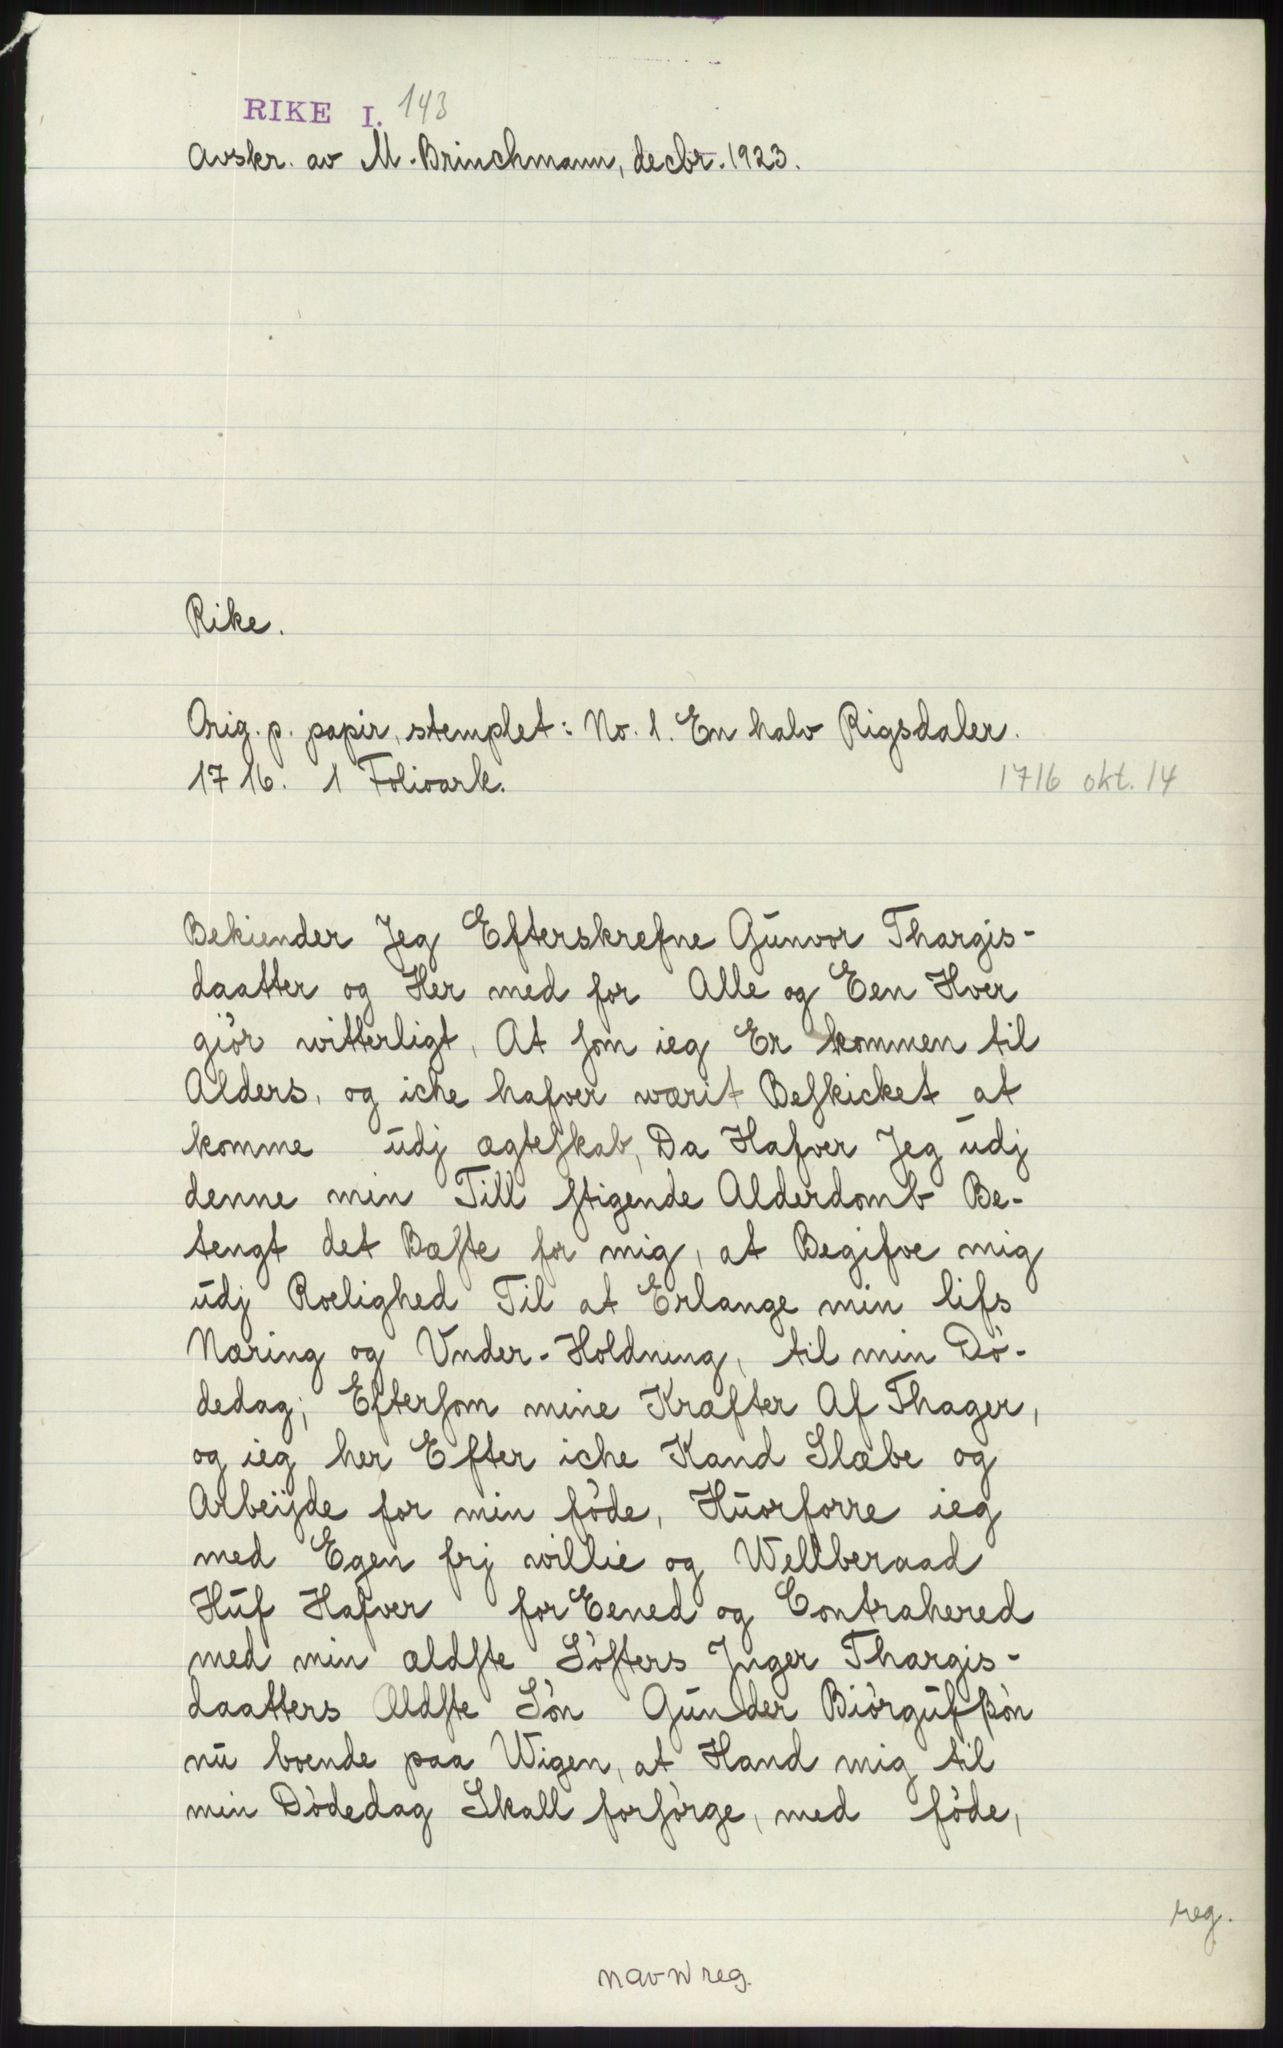 RIKE I. 143
Avskr. av M. Brinchmann, decbr. 1923.
Rike.
Orig. p. papir, stemplet: No. 1. En halv Rigsdaler.
1716. 1 Folioark.
1716 okt. 14
Bekiender Jeg Efterskrefne Gunvor Thargis-
daatter og Her med for Alle og Een Hver
giör witterligt, At ſom ieg Er kommen til
Alders, og iche hafver wærit Beſkicket at
komme udj ægteſkab, Da Hafver Jeg udj
denne min Till ſtigende Alderdomb Be-
tengt det Bæſte for mig, at Begifve mig
udj Roelighed Til at Erlange min lifs
Næring og Vnder-Holdning, til min Dö-
dedag; Efterſom mine Kræfter Af Thager,
og ieg her Efter iche Kand Slæbe og
Arbeijde for min föde, Huorforre ieg
med Egen frj willie og Wellberaad
Huf Hafver for Eened og Contrahered
med min ældſte Söſters Jnger Thargis-
daatters Ældſte Sön Gunder Biörgufßön
nu boende paa Wigen, at Hand mig til
min Dödedag Skall forſörge, med föde,
reg.
navnreg.